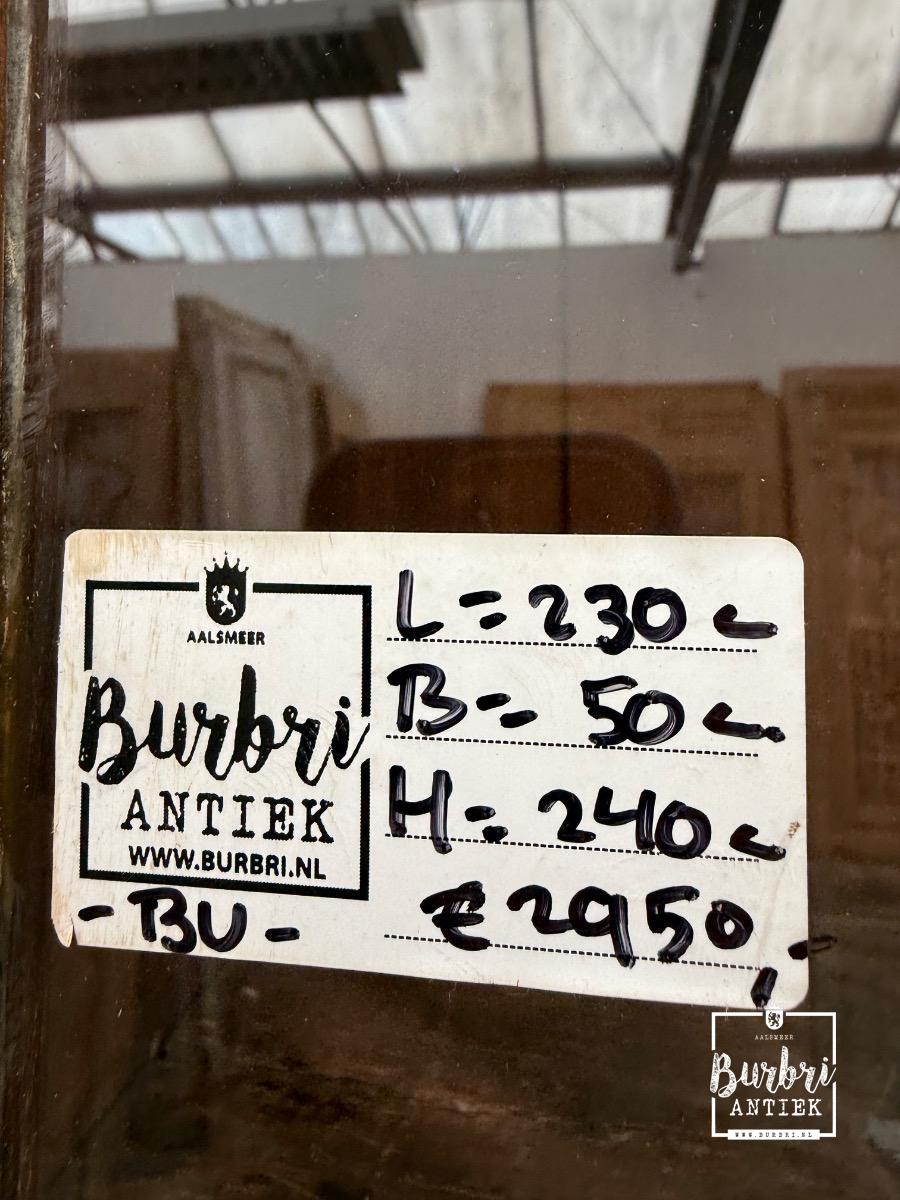 AALSMEER
Burbri
ANTIEK
WWW.BURBRI.NL
- BU -
L = 230 c
B = 50 c
H = 240 c
€ 2950,-
AALSMEER
Burbri
ANTIEK
WWW.BURBRI.NL